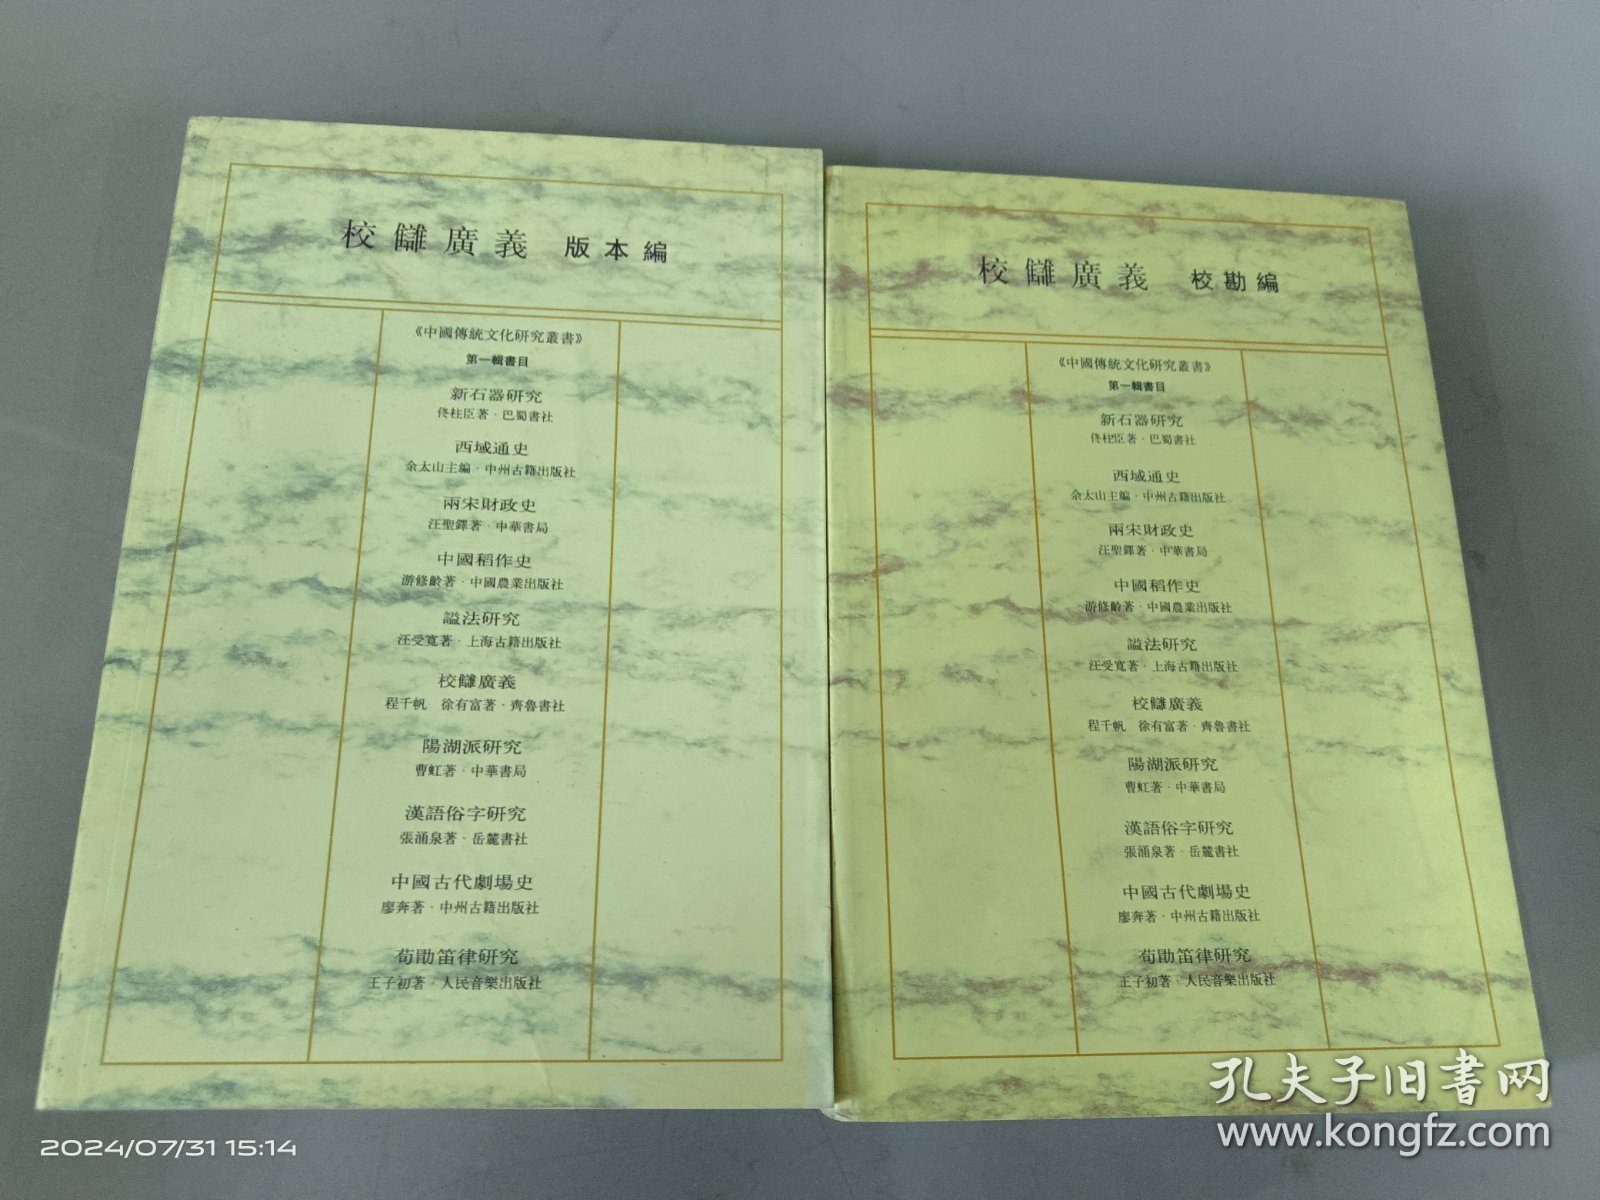 校讎廣義 版本編
《中國傳統文化研究叢書》
第一輯書目
新石器研究
佟柱臣著·巴蜀書社
西域通史
余太山主編·中州古籍出版社
兩宋財政史
汪聖鐸著·中華書局
中國稻作史
游修齡著·中國農業出版社
謚法研究
汪受寬著·上海古籍出版社
校讎廣義
程千帆 徐有富著·齊魯書社
陽湖派研究
曹虹著·中華書局
漢語俗字研究
張涌泉著·岳麓書社
中國古代劇場史
廖奔著·中州古籍出版社
荀勖笛律研究
王子初著·人民音樂出版社
校讎廣義 校勘編
《中國傳統文化研究叢書》
第一輯書目
新石器研究
佟柱臣著·巴蜀書社
西域通史
余太山主編·中州古籍出版社
兩宋財政史
汪聖鐸著·中華書局
中國稻作史
游修齡著·中國農業出版社
謚法研究
汪受寬著·上海古籍出版社
校讎廣義
程千帆 徐有富著·齊魯書社
陽湖派研究
曹虹著·中華書局
漢語俗字研究
張涌泉著·岳麓書社
中國古代劇場史
廖奔著·中州古籍出版社
荀勖笛律研究
王子初著·人民音樂出版社
孔夫子旧書网
www.kongfz.com
2024/07/31 15:14